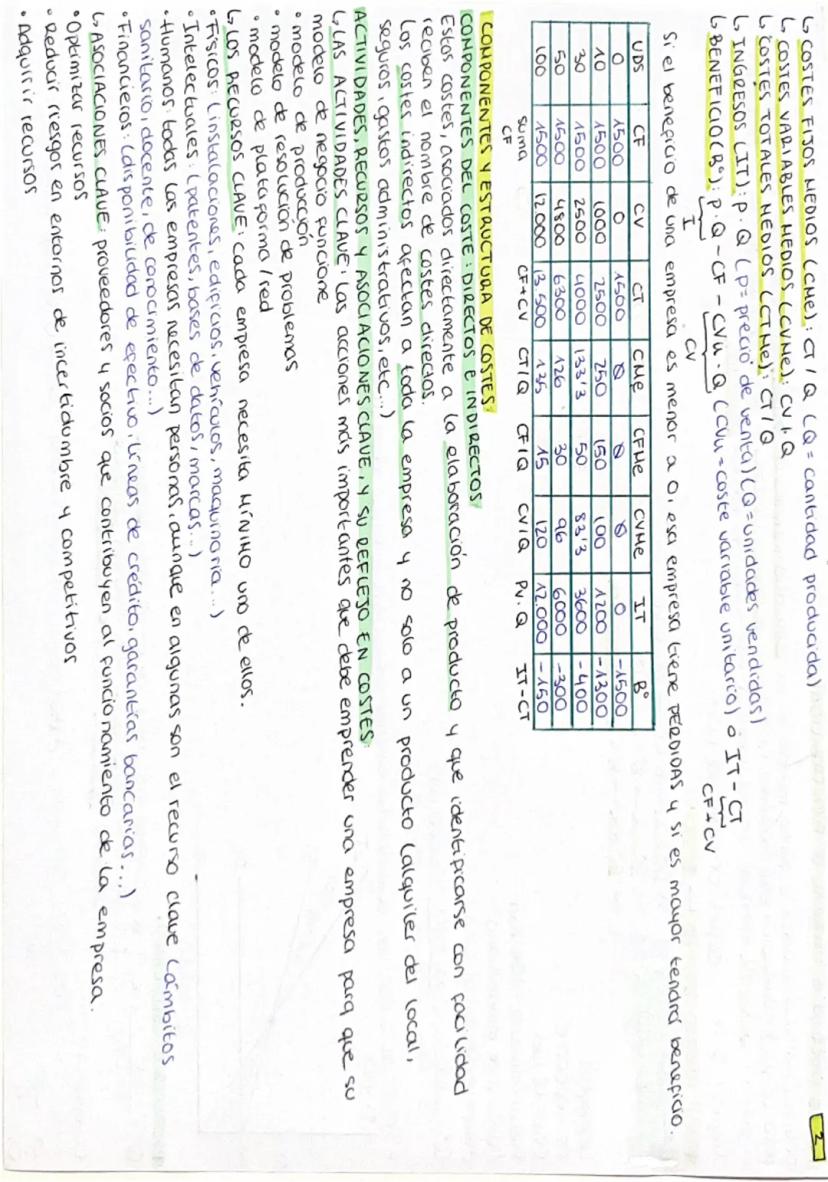 2
↳ COSTES FIJOS MEDIOS (CMe): CT / Q (Q = cantidad producida)
↳ COSTES VARIABLES MEDIOS (CVMe): CV / Q
↳ COSTES TOTALES MEDIOS (CTMe): CT / Q
↳ INGRESOS (IT): P · Q (P = precio de venta) (Q = unidades vendidas)
↳ BENEFICIO (Bº): P · Q - CF - CVu · Q (CVu = coste variable unitario) o IT - CT
I CV CF+CV
Si el beneficio de una empresa es menor a 0, esa empresa tiene PÉRDIDAS y si es mayor tendrá beneficio.
UDS CF CV CT CMe CFMe CVMe IT Bº
0 1500 0 1500 Ø Ø Ø 0 -1500
10 1500 1000 2500 250 150 100 1200 -1300
30 1500 2500 4000 133'3 50 83'3 3600 -400
50 1500 4800 6300 126 30 96 6000 -300
100 1500 12000 13500 135 15 120 12.000 -150
suma CF CF+CV CT/Q CF/Q CV/Q Pv.Q IT-CT
COMPONENTES Y ESTRUCTURA DE COSTES:
COMPONENTES DEL COSTE: DIRECTOS E INDIRECTOS:
Estos costes, asociados directamente a la elaboración de producto y que identificarse con facilidad
reciben el nombre de costes directos.
Los costes indirectos afectan a toda la empresa y no solo a un producto (alquiler del local,
seguros, gastos administrativos, etc...)
ACTIVIDADES, RECURSOS Y ASOCIACIONES CLAVE, Y SU REFLEJO EN COSTES:
↳ LAS ACTIVIDADES CLAVE: las acciones más importantes que debe emprender una empresa para que su
modelo de negocio funcione
• modelo de producción
• modelo de resolución de problemas
• modelo de plataforma / red
↳ LOS RECURSOS CLAVE: cada empresa necesita MÍNIMO uno de ellos.
• Físicos: (instalaciones, edificios, vehículos, maquinaria...)
• Intelectuales: (patentes, bases de datos, marcas...)
• Humanos: todas las empresas necesitan personas, aunque en algunas son el recurso clave (ámbitos
sanitario, docente, de conocimiento...)
• Financieros: (disponibilidad de efectivo, líneas de crédito, garantías bancarias...)
↳ ASOCIACIONES CLAVE: proveedores y socios que contribuyen al funcionamiento de la empresa.
• Optimizar recursos
• Reducir riesgos en entornos de incertidumbre y competitivos
• Adquirir recursos